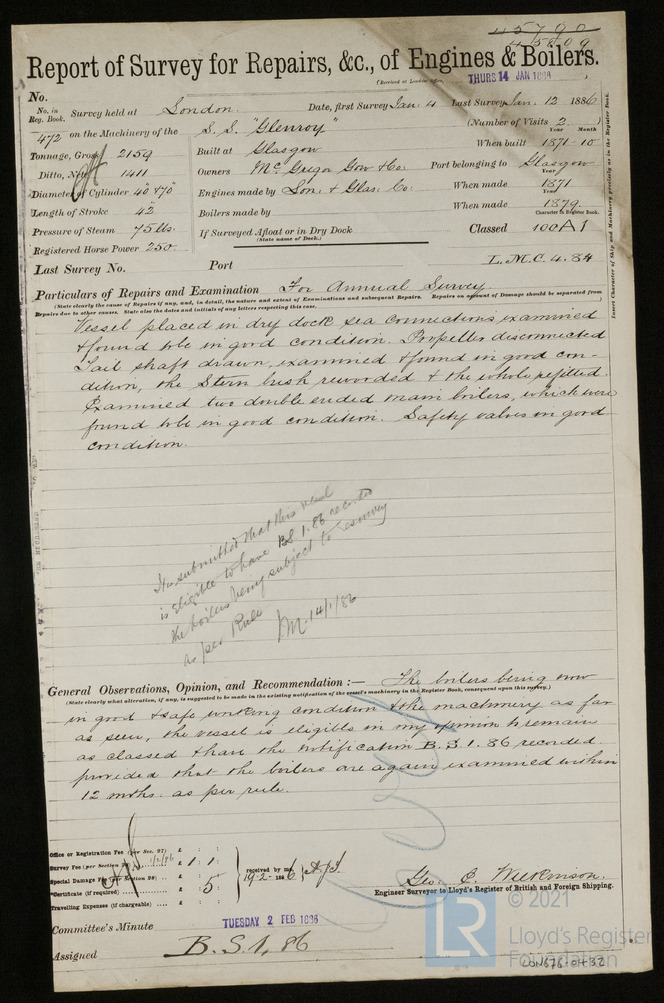 45790
45809
Report of Survey for Repairs, &c., of Engines & Boilers.
(Received at London Office, THURS 14 JAN 1886 )
No.
No. in Reg. Book. Survey held at London. Date, first Survey Jan. 4 Last Survey Jan. 12 1886
472 on the Machinery of the S.S. "Glenroy" (Number of Visits 2.)
Year Month
Tonnage, Gross 2159 Built at Glasgow When built 1871-10
Ditto, Net 1411 Owners Mc Gregor Gow & Co. Port belonging to Glasgow
Year
Diameter of Cylinder 40" & 70" Engines made by Lon. & Glas. Co. When made 1871
Year
Length of Stroke 42" Boilers made by When made 1879.
Pressure of Steam 75 lbs. If Surveyed Afloat or in Dry Dock Classed 100A1
Character in Register Book.
(State name of Dock.)
Registered Horse Power 250
Last Survey No. Port L.M.C. 4.84
Insert Character of Ship and Machinery precisely as in the Register Book.
Particulars of Repairs and Examination For Annual Survey.
(State clearly the cause of Repairs if any, and, in detail, the nature and extent of Examinations and subsequent Repairs. Repairs on account of Damage should be separated from
Repairs due to other causes. State also the dates and initials of any letters respecting this case.
Vessel placed in dry dock sea connections examined
& found to be in good condition. Propeller disconnected
Tail shaft drawn, examined & found in good con-
dition, the Stern bush rewooded & the whole refitted.
Examined two double ended main boilers, which were
found to be in good condition. Safety valves in good
condition.
It is submitted that this vessel
is eligible to have BS 1.86 recorded
the boilers being subject to resurvey
as per Rule
14/1/86
General Observations, Opinion, and Recommendation :— The boilers being now
(State clearly what alteration, if any, is suggested to be made in the existing notification of the vessel's machinery in the Register Book, consequent upon this survey.)
in good & safe working condition & the machinery as far
as seen, the vessel is eligible in my opinion to remain
as classed & have the notification B.S. 1. 86 recorded
provided that the boilers are again examined within
12 mths. as per rule.
Office or Registration Fee (per Sec. 27) £ : :
Survey Fee (per Section £ 1 : 1 :
Special Damage Fee (per Section 28) £ : : received by me,
*Certificate (if required) £ : 5 : 19-2-1886
Travelling Expenses (if chargeable) £ : :
Geo. C. Wilkinson.
Engineer Surveyor to Lloyd's Register of British and Foreign Shipping.
Committee's Minute TUESDAY 2 FEB 1886
Assigned B.S. 1, 86
© 2021
LR
Lloyd's Register
Foundation
LON676-0432